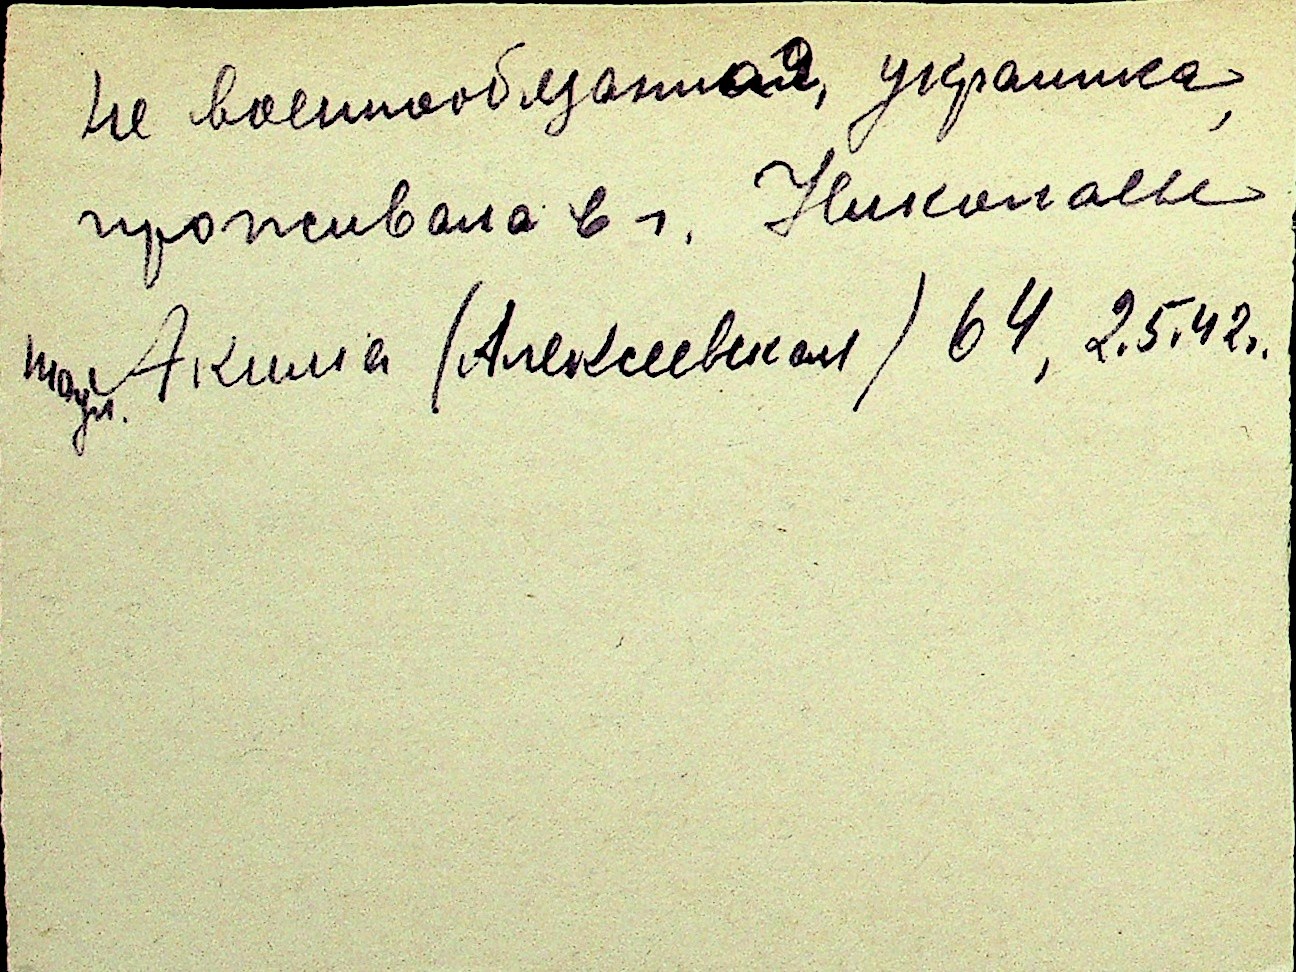 не военнообязанная, украинка,
проживала в г. Николаеве
по ул. Акима (Алексеевская) 64, 2.5.42г.